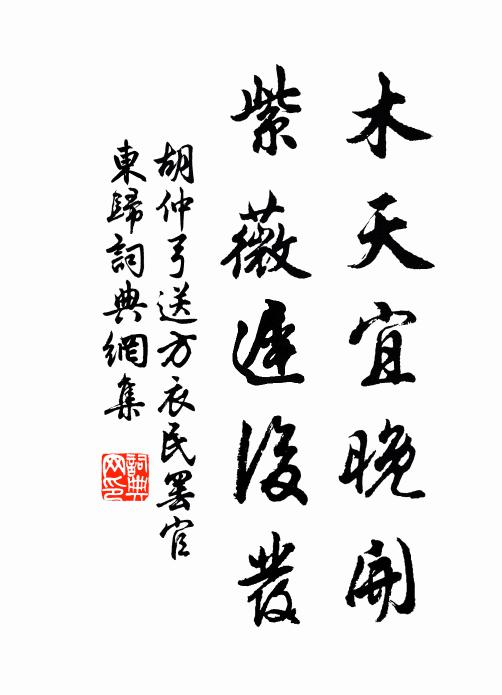 木天宜晚開
紫薇遲後發
胡仲弓送方衣民罢官
東歸詞典網集
詞典
网印